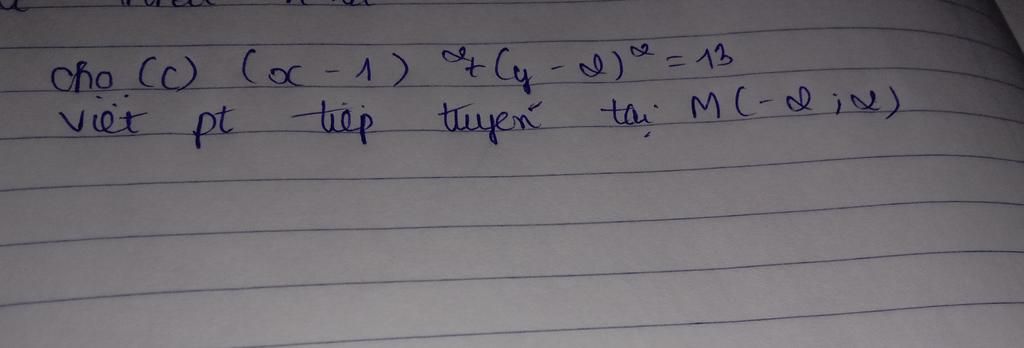 cho (C) (x - 1)² + (y - 2)² = 13
viết pt tiếp tuyến tại M(-2; 2)